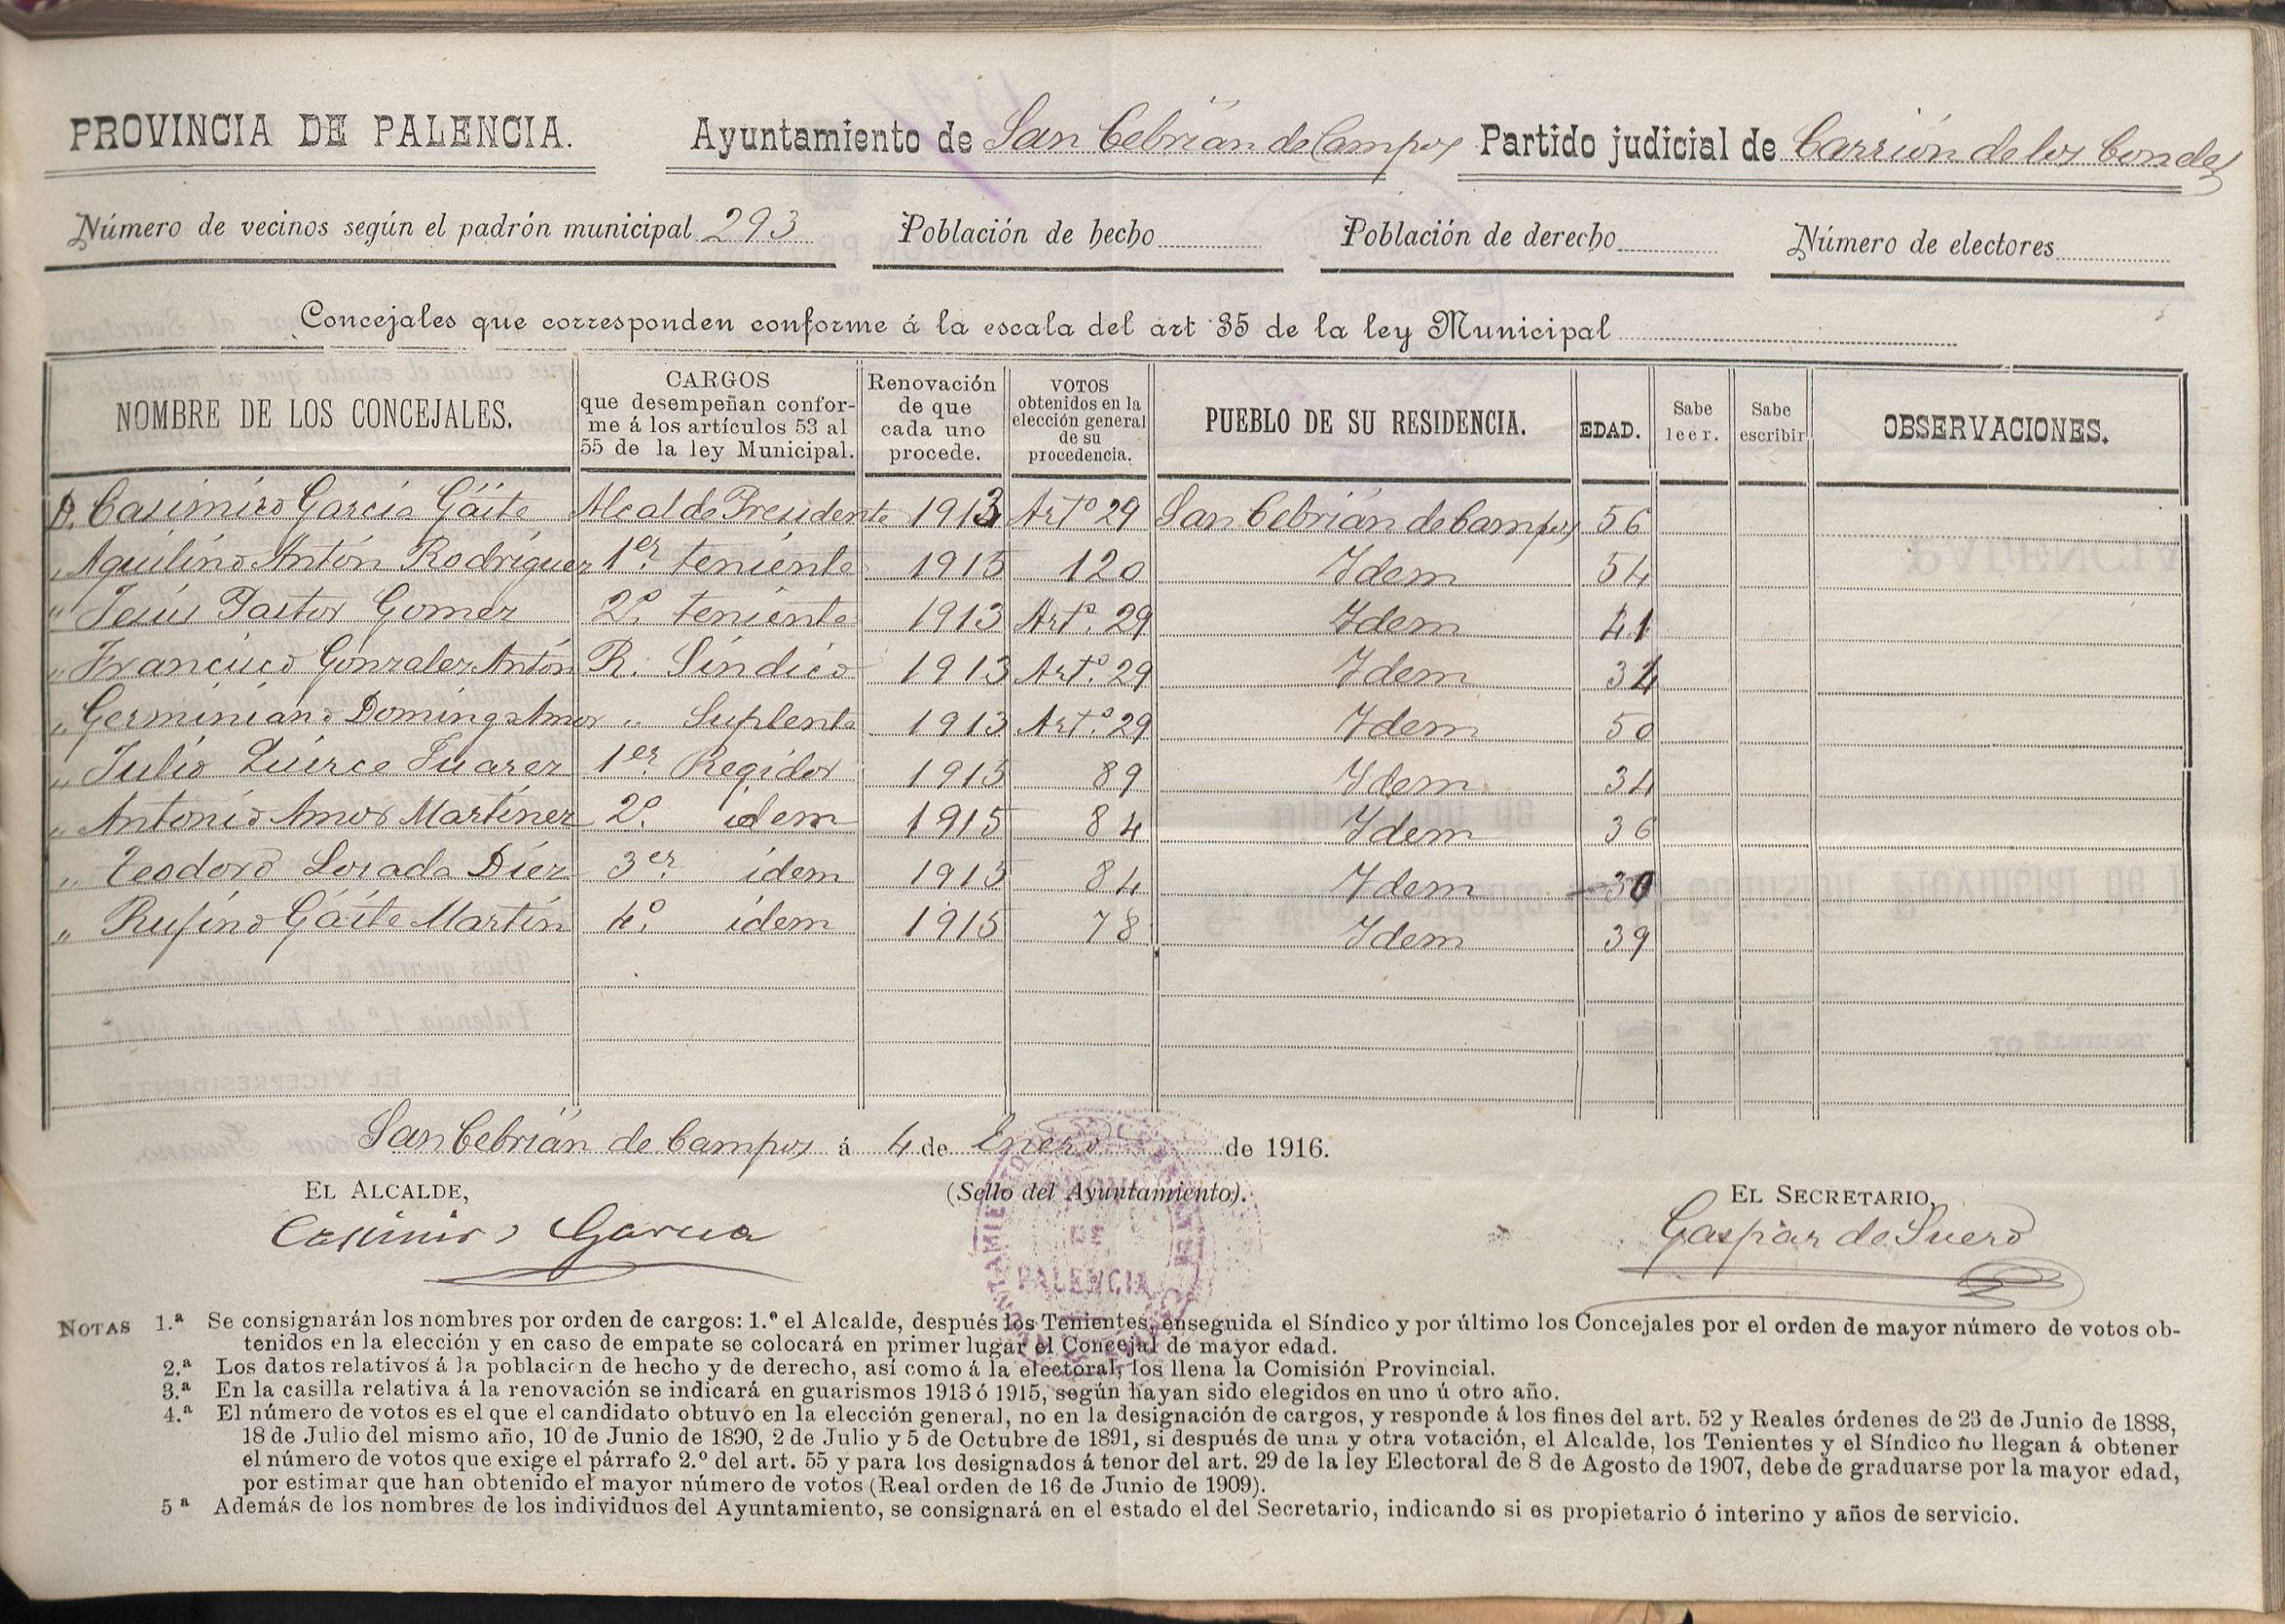 PROVINCIA DE PALENCIA. Ayuntamiento de San Cebrián de Campos Partido judicial de Carrión de los Condes
Número de vecinos según el padrón municipal 293 Población de hecho Población de derecho Número de electores
Concejales que corresponden conforme á la escala del art 35 de la ley Municipal
NOMBRE DE LOS CONCEJALES. CARGOS que desempeñan conforme á los artículos 53 al 55 de la ley Municipal. Renovación de que cada uno procede. VOTOS obtenidos en la elección general de su procedencia. PUEBLO DE SU RESIDENCIA. EDAD. Sabe leer. Sabe escribir OBSERVACIONES.
D. Casimiro García Gäite Alcalde Presidente 1913 Artº 29 San Cebrián de Campos 56
„ Aquilino Antón Rodríguez 1er. teniente 1915 120 Idem 54
„ Jesús Pastor Gomez 2º. teniente 1913 Artº. 29 Idem 41
„ Francisco González Antón R. Síndico 1913 Artº. 29 Idem 34
„ Germiniano Domingo Amor „ Suplente 1913 Artº. 29 Idem 50
„ Julio Quirce Suarez 1er. Regidor 1915 89 Idem 34
„ Antonio Amor Martínez 2º. idem 1915 84 Idem 36
„ Teodoro Losada Díez 3er. idem 1915 84 Idem 30
„ Rufino Gäite Martín 4º. idem 1915 78 Idem 39
San Cebrián de Campos á 4 de Enero de 1916.
EL ALCALDE, (Sello del Ayuntamiento). EL SECRETARIO,
Casimiro García Gaspar de Suero
DE
PALENCIA
NOTAS 1.ª Se consignarán los nombres por orden de cargos: 1.º el Alcalde, después los Tenientes, enseguida el Síndico y por último los Concejales por el orden de mayor número de votos ob-
tenidos en la elección y en caso de empate se colocará en primer lugar el Concejal de mayor edad.
2.ª Los datos relativos á la población de hecho y de derecho, así como á la electoral, los llena la Comisión Provincial.
3.ª En la casilla relativa á la renovación se indicará en guarismos 1913 ó 1915, según hayan sido elegidos en uno ú otro año.
4.ª El número de votos es el que el candidato obtuvo en la elección general, no en la designación de cargos, y responde á los fines del art. 52 y Reales órdenes de 23 de Junio de 1888,
18 de Julio del mismo año, 10 de Junio de 1890, 2 de Julio y 5 de Octubre de 1891, si después de una y otra votación, el Alcalde, los Tenientes y el Síndico no llegan á obtener
el número de votos que exige el párrafo 2.º del art. 55 y para los designados á tenor del art. 29 de la ley Electoral de 8 de Agosto de 1907, debe de graduarse por la mayor edad,
por estimar que han obtenido el mayor número de votos (Real orden de 16 de Junio de 1909).
5ª Además de los nombres de los individuos del Ayuntamiento, se consignará en el estado el del Secretario, indicando si es propietario ó interino y años de servicio.